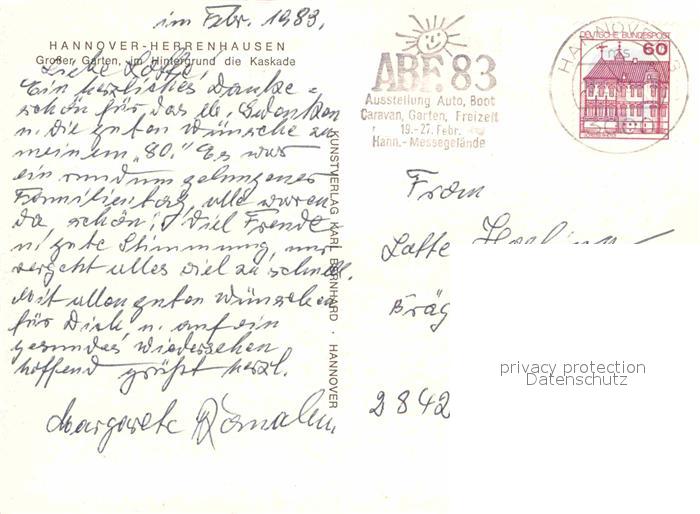 im Febr. 1983.
HANNOVER-HERRENHAUSEN
Großer Garten, im Hintergrund die Kaskade
Liebe Lotte,
Ein herzliches Danke-
schön für das lb. Gedenken
u. die guten Wünsche zu
meinem „80." Es war
ein rundum gelungener
Familientag, alle waren
da, schön! Viel Freude
u. gute Stimmung, nur
vergeht alles viel zu schnell.
Mit allen guten Wünschen
für Dich u. auf ein
gesundes Wiedersehen
hoffend grüßt herzl.
Margarete
KUNSTVERLAG KARL BORNHARD · HANNOVER
ABF. 83
Ausstellung Auto, Boot
Caravan, Garten, Freizeit
19.-27. Febr.
Hann.-Messegelände
HANNOVER
DEUTSCHE BUNDESPOST
60
Frau
Lotte
Bräg
2842
privacy protection
Datenschutz